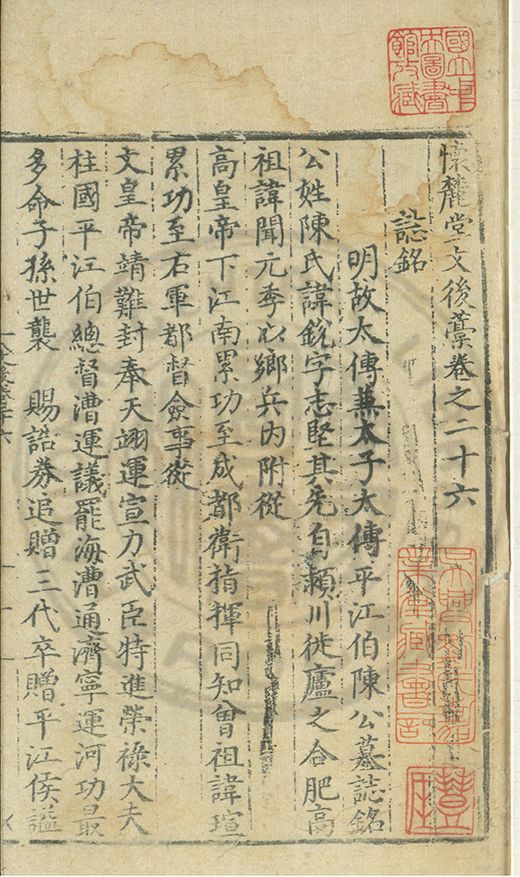 懷麓堂文後藁卷之二十六
誌銘
明故太傅兼太子太傅平江伯陳公墓誌銘
公姓陳氏諱銳字志堅其先自頴川徙廬之合肥高
祖諱聞元季以鄉兵內附從
高皇帝下江南累功至成都衛指揮同知曾祖諱瑄
累功至右軍都督僉事從
文皇帝靖難封奉天翊運宣力武臣特進榮祿大夫
柱國平江伯總督漕運議罷海漕通濟寧運河功最
多命子孫世襲 賜誥券追贈三代卒贈平江侯謚
國立中
央圖書
館收藏